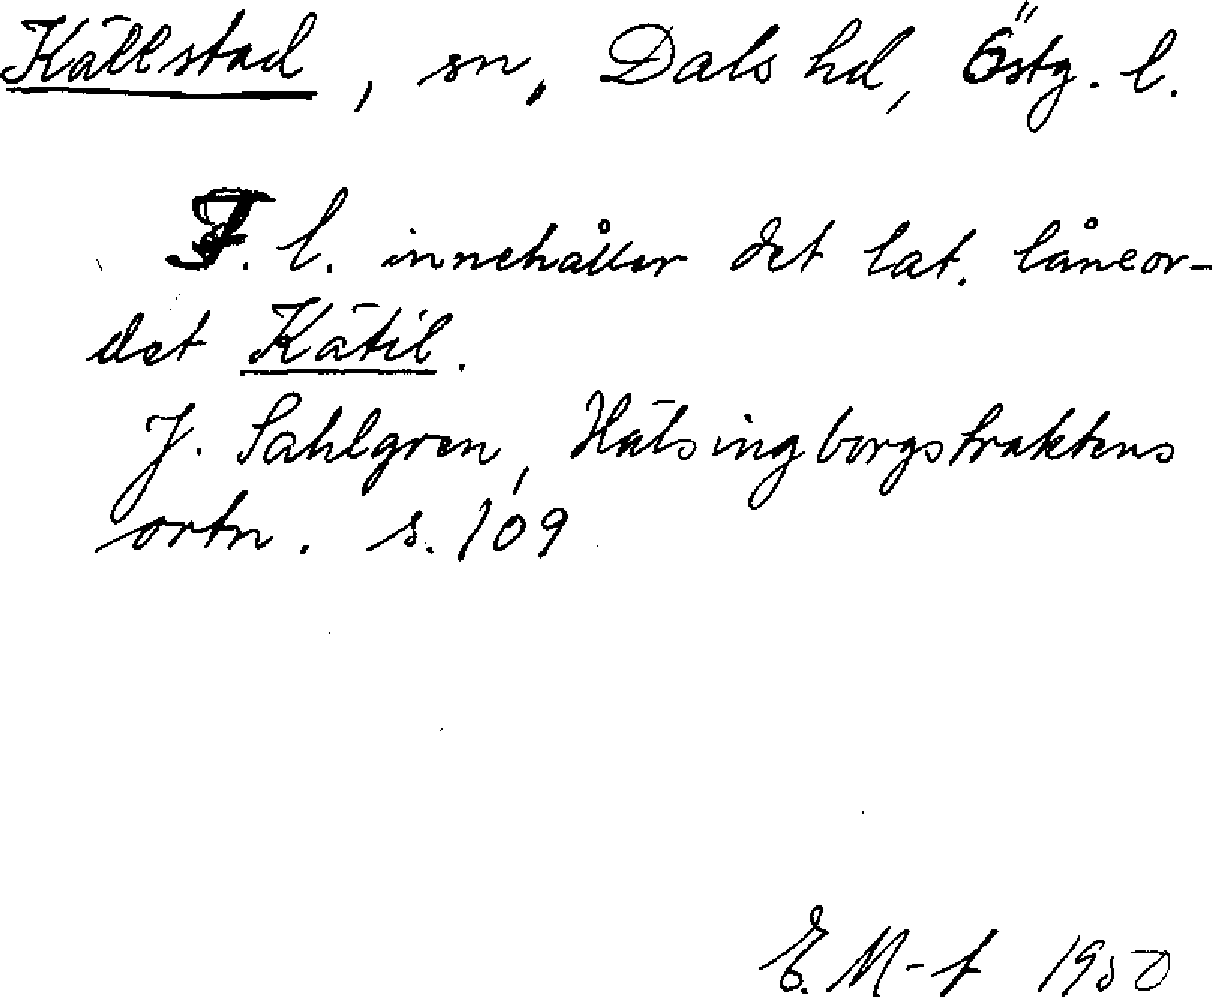 Källstad, sn, Dals hd, Östg. l.
F. l. innehåller det lat. låneor-
det Kätil.
J. Sahlgren, Hälsingborgstraktens
ortn. s. 109
E. M-t 1950